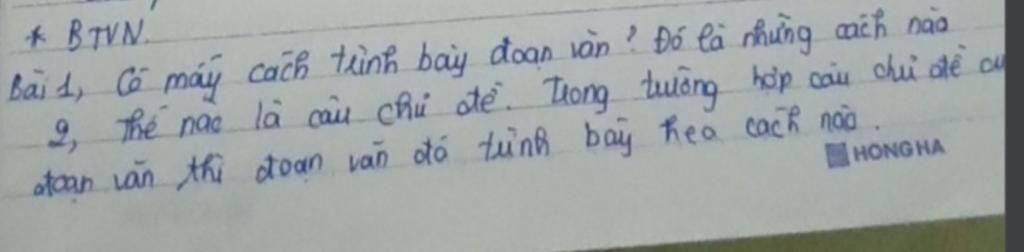 * BTVN.
Bài 1, Có mấy cách trình bày đoạn văn? Đó là những cách nào
2, Thế nào là câu chủ đề. Trong trường hợp câu chủ đề cu
đoạn văn thì đoạn văn đó trình bày theo cách nào.
HONG HA